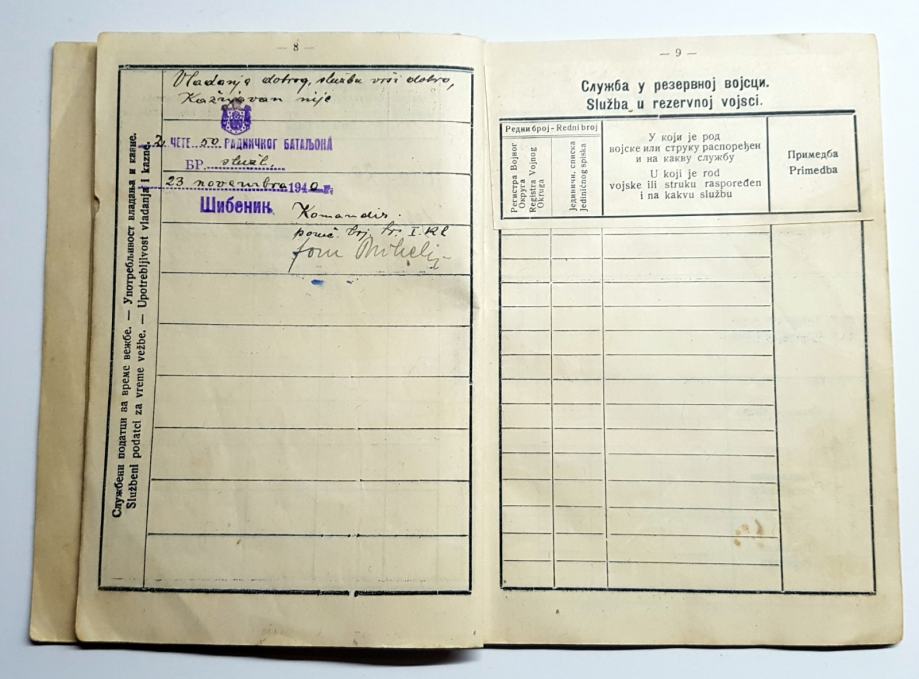 — 8 —
Службени подаци за време вежбе. — Употребљивост владања и казне.
Službeni podatci za vreme vežbe. — Upotrebljivost vladanja i kazne.
Vladanja dobrog, službu vrši dobro,
Kažnjavan nije
2. ЧЕТЕ 50. РАДНИЧКОГ БАТАЉОНА
БР. služb.
23 novembra 1940 г.
Шибеник
Komandir,
I. kl
— 9 —
Служба у резервној војсци.
Služba u rezervnoj vojsci.
Редни број - Redni broj
Регистра Војног
Округа
Registra Vojnog
Okruga
Јединичн. списка
Jediničnog spiska
У који је род
војске или струку распоређен
и на какву службу
U koji je rod
vojske ili struku raspoređen
i na kakvu službu
Примедба
Primedba